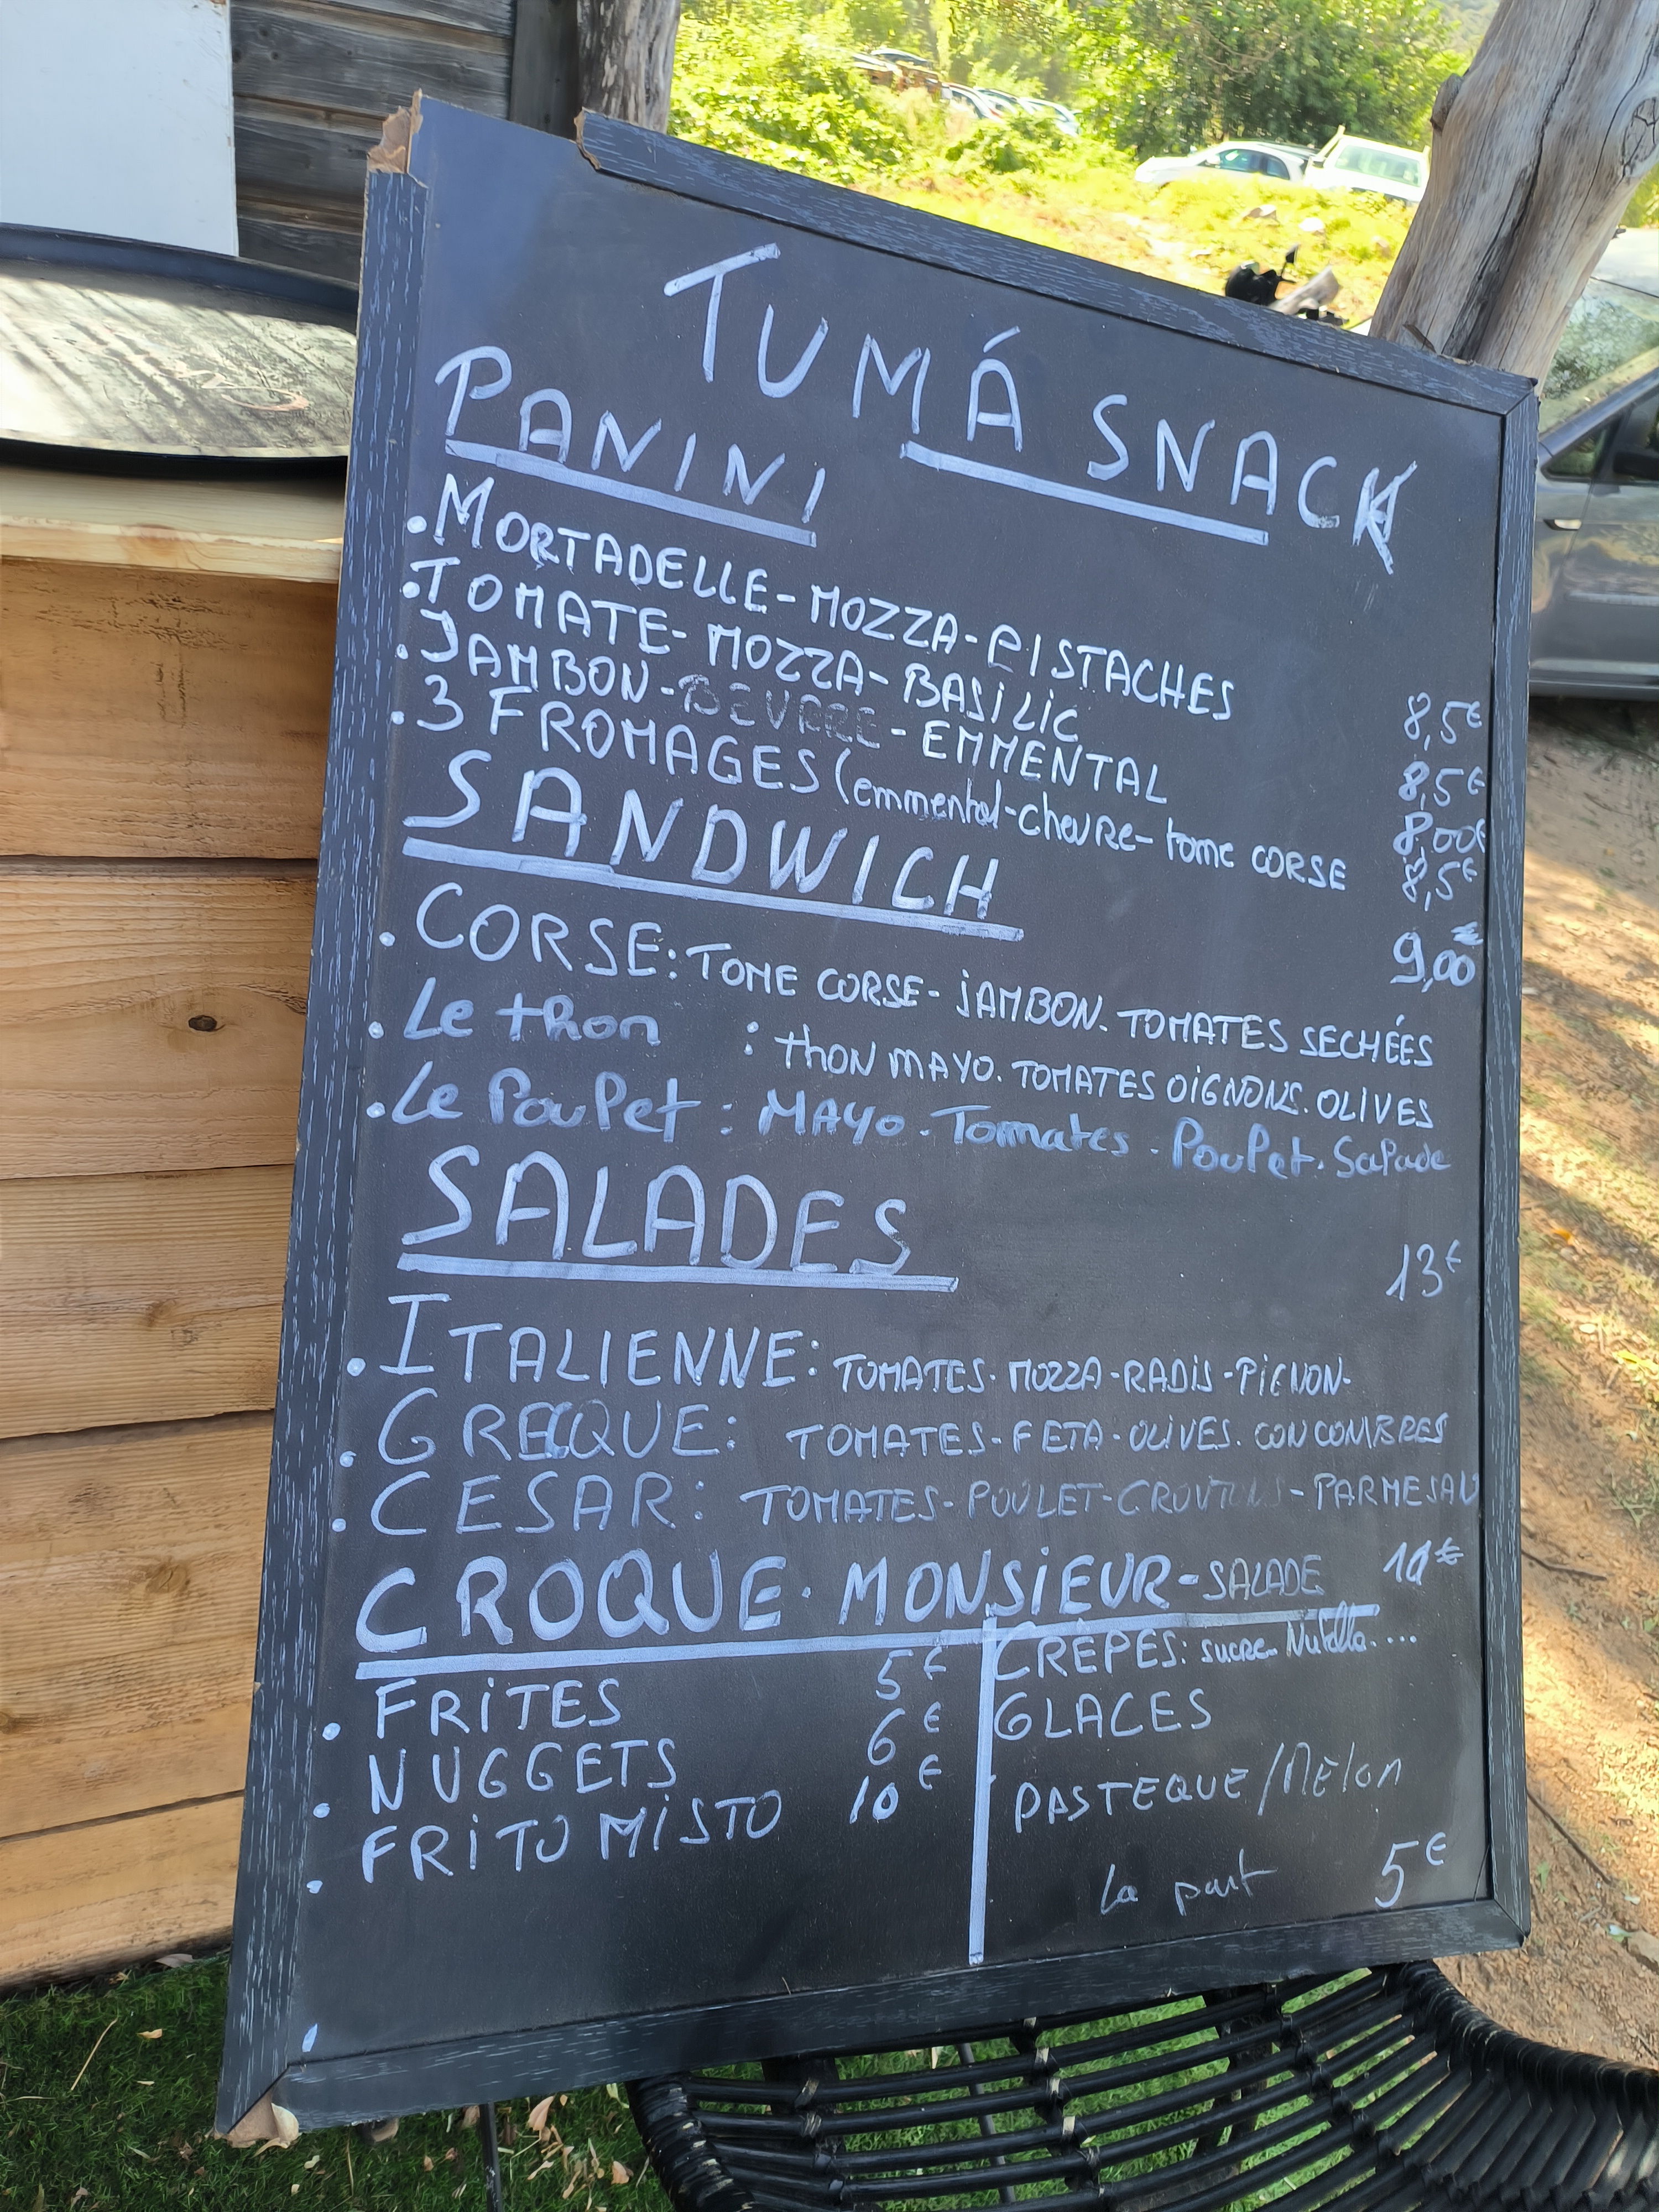 TUMÁ SNACK
PANINI
. MORTADELLE - MOZZA - PISTACHES 8,5€
. TOMATE - MOZZA - BASILIC 8,5€
. JAMBON - BEURRE - EMMENTAL 8,00€
. 3 FROMAGES (emmental - chevre - tome CORSE 8,5€
SANDWICH 9,00€
. CORSE: TOME CORSE - JAMBON. TOMATES SECHÉES
. Le thon : thon MAYO. TOMATES OIGNONS. OLIVES
. Le Poulet : MAYO. Tomates. Poulet. Salade
SALADES 13€
. ITALIENNE: TOMATES. MOZZA - RADIS - PIGNON -
. GRECQUE: TOMATES - FETA - OLIVES. CONCOMBRES
. CESAR: TOMATES - POULET - CROUTONS - PARMESAN
CROQUE. MONSIEUR - SALADE €
. FRITES 5€
. NUGGETS 6€
. FRITO MISTO 10€
CREPES: sucre - Nutella....
GLACES
PASTEQUE/Melon
La part 5€